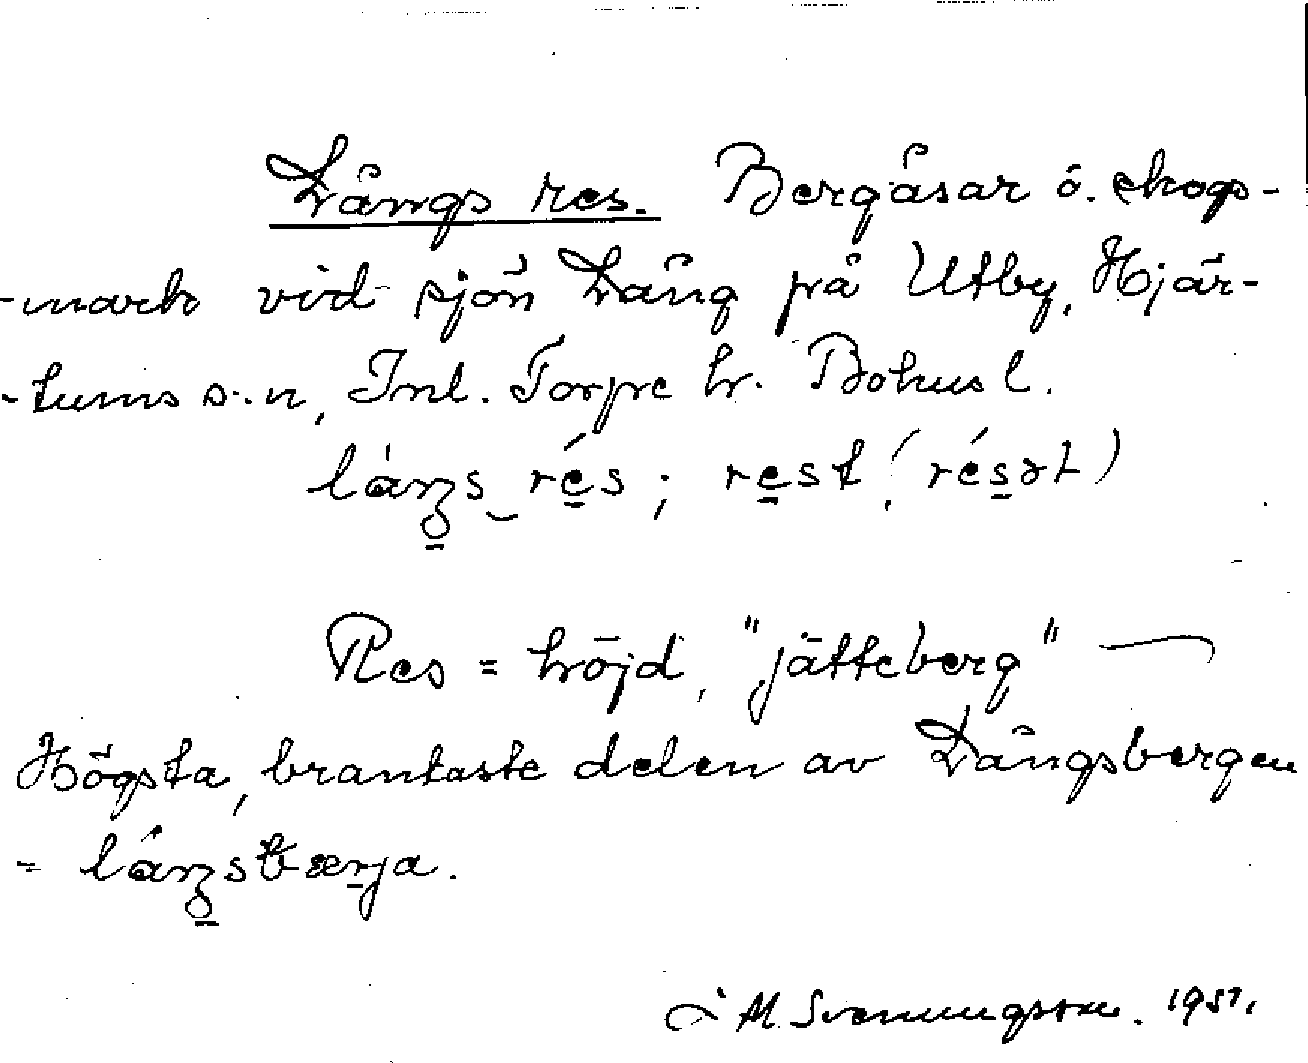 Långs res. Bergåsar o. skogs-
-mark vid sjön Lång på Utby, Hjär-
-tums s:n, Inl. Torpe hr. Bohusl.
rest,
Res = höjd, "jätteberg" —
Högsta, brantaste delen av Långsbergen
=
M. Svenungsson. 1951.